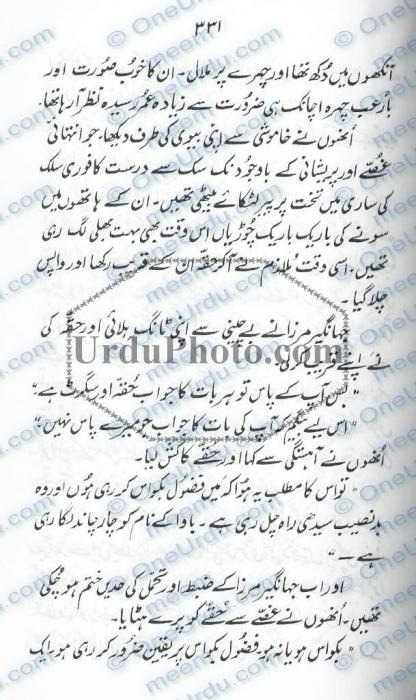 ۳۳۱
آنکھوں میں دُکھ تھا اور چہرے پر ملال۔ ان کا خوب صُورت اور
بارعب چہرہ اچانک ہی ضرورت سے زیادہ عمر رسیدہ نظر آ رہا تھا۔
اُنھوں نے خاموشی سے اپنی بیوی کی طرف دیکھا، جو انتہائی
غُصّے اور پریشانی کے باوجود نک سک سے درست کافوری سلک
کی ساری میں تخت پر پیر لٹکائے بیٹھی تھیں۔ ان کے ہاتھوں میں
سونے کی باریک باریک چوڑیاں اس وقت بھی بہت بھلی لگ رہی
تھیں۔ اسی وقت مُلازم نے آ کر حقّہ ان کے قریب رکھا اور واپس
چلا گیا۔
جہانگیر مرزا نے بے چینی سے اپنی ٹانگ ہلائی اور حقّہ کی
نے اپنے قریب کر لی۔
UrduPhoto.com
" بس آپ کے پاس تو ہر بات کا جواب حُقّہ اور سگریٹ ہے۔"
" اس لیے بیگم کہ آپ کی بات کا جواب جو میرے پاس نہیں۔"
اُنھوں نے آہستگی سے کہا اور حقّے کا کش لیا۔
" تو اس کا مطلب یہ ہُوا کہ میں فضُول بکواس کر رہی ہُوں اور وہ
بدنصیب سیدھی راہ چل رہی ہے۔ باوا کے نام کو چار چاند لگا رہی
ہے۔ "
اور اب جہانگیر مرزا کے ضبط اور تحمّل کی حدیں ختم ہو چکی
تھیں۔ اُنھوں نے غصّے سے حُقّے کو پرے ہٹایا۔
" بکواس ہو یا نہ ہو فضُول بکواس پر یقین ضرُور کر رہی ہو۔ ایک
© OneUrdu.com